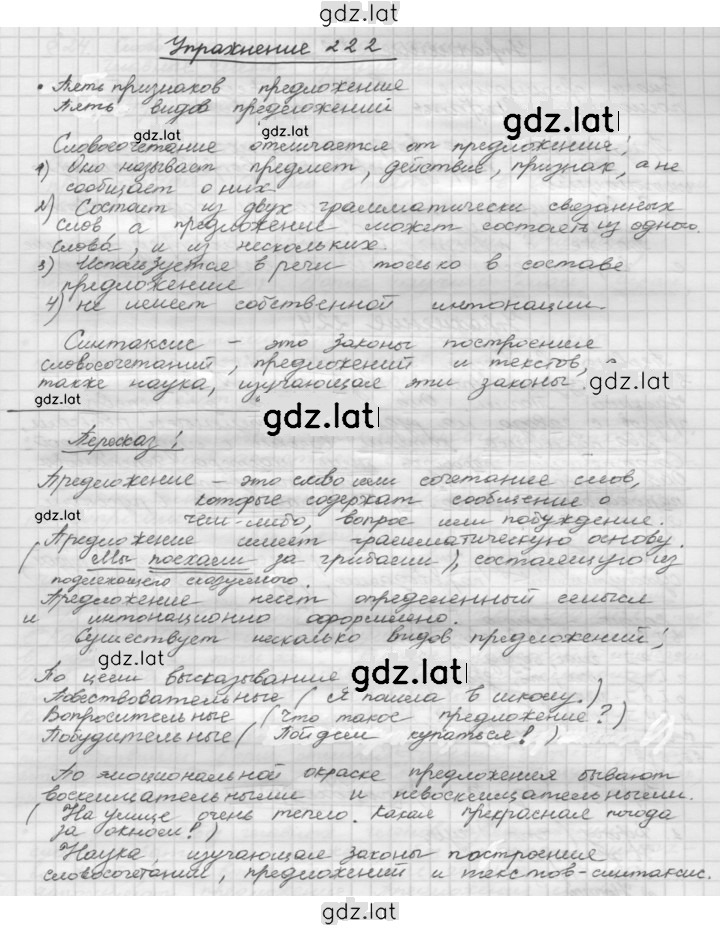 gdz.lat
Упражнение 222
• Пять признаков предложение
Пять видов предложений
gdz.lat gdz.lat gdz.lat
Словосочетание отличается от предложения:
1) Оно называет предмет, действие, признак, а не
сообщает о них.
2) Состоит из двух грамматически связанных
слов, а предложение может состоять из одного
слова, и из нескольких.
3) Используется в речи только в составе
предложения
4) не имеет собственной интонации.
Синтаксис - это законы построения
словосочетаний, предложений и текстов, а
также наука, изучающая эти законы.
gdz.lat
gdz.lat gdz.lat
Пересказ:
Предложение - это слово или сочетание слов,
которые содержат сообщение о
gdz.lat чем-либо, вопрос или побуждение.
Предложение имеет грамматическую основу.
(Мы поехали за грибами), состоящую из
подлежащего сказуемого.
Предложение несет определенный смысл
и интонационно оформлено.
Существует несколько видов предложений:
gdz.lat
gdz.lat
По цели высказывания
Повествовательные (Я пошла в школу.)
Вопросительные (Что такое предложение?)
Побудительные (Пойдем купаться!)
По эмоциональной окраске предложения бывают
восклицательными и невосклицательными.
(На улице очень тепло. Какая прекрасная погода
за окном!)
Наука, изучающая законы построения
словосочетаний, предложений и текстов-синтаксис.
gdz.lat